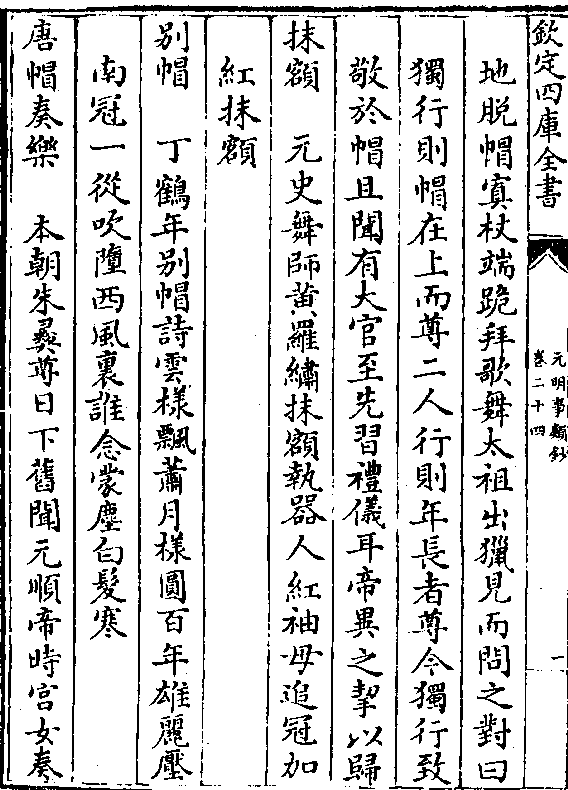 欽定四庫全書
元明事類鈔
卷二十四
一
地脱帽寘杖端跪拜歌舞太祖出獵見而問之對曰
獨行則帽在上而尊二人行則年長者尊今獨行致
敬於帽且聞有大官至先習禮儀耳帝異之挈以歸
抹額　元史舞師黄羅繡抹額執器人紅袖母追冠加
紅抹額
别帽　丁鶴年别帽詩雲様飄蕭月様圓百年雄麗壓
南冠一從吹墮西風裏誰念蒙塵白髮寒
唐帽奏樂　本朝朱彞尊日下舊聞元順帝時宫女奏